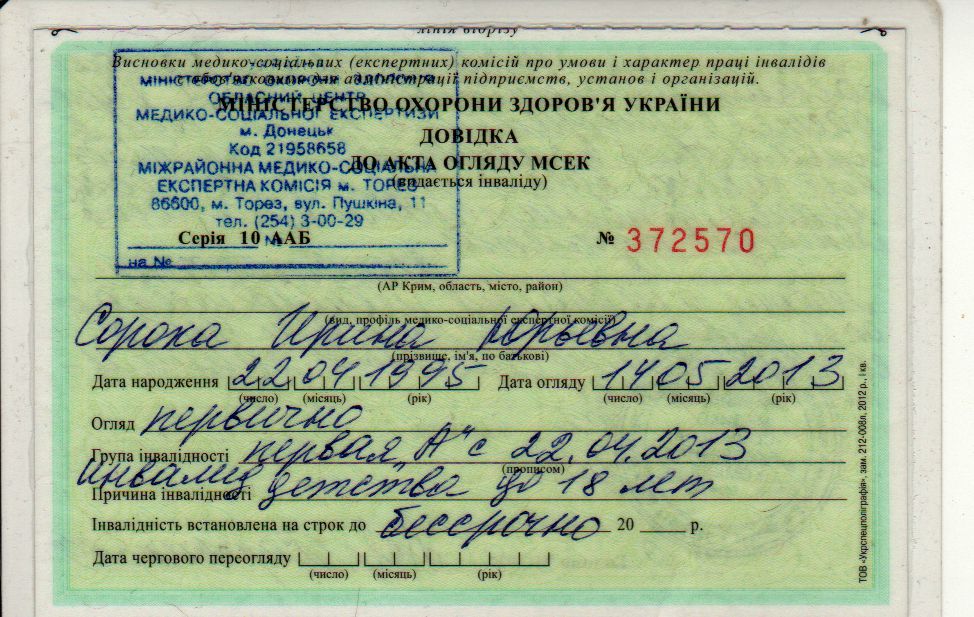 лінія відрізу
Висновки медико-соціальних (експертних) комісій про умови і характер праці інвалідів
є обов'язковими для адміністрації підприємств, установ і організацій.
МІНІСТЕРСТВО ОХОРОНИ ЗДОРОВ'Я УКРАЇНИ
ОБЛАСНИЙ ЦЕНТР
МЕДИКО-СОЦІАЛЬНОЇ ЕКСПЕРТИЗИ
м. Донецьк
Код 21958658
МІЖРАЙОННА МЕДИКО-СОЦІАЛЬНА
ЕКСПЕРТНА КОМІСІЯ м. ТОРЕЗ
86600, м. Торез, вул. Пушкіна, 11
тел. (254) 3-00-29
на №
ДОВІДКА
ДО АКТА ОГЛЯДУ МСЕК
(видається інваліду)
Серія 10 ААБ № 372570
(АР Крим, область, місто, район)
(вид, профіль медико-соціальної експертної комісії)
Сорока Ирина Юрьевна
(прізвище, ім'я, по батькові)
Дата народження 22 04 1995 Дата огляду 14 05 2013
(число) (місяць) (рік) (число) (місяць) (рік)
Огляд первично
Група інвалідності первая "А" с 22.04.2013
(прописом)
Причина інвалідності инвалид детства до 18 лет
Інвалідність встановлена на строк до бессрочно 20 р.
Дата чергового переогляду
(число) (місяць) (рік)
ТОВ «Укрспецполіграфія», зам. 212-008л, 2012 р., І кв.